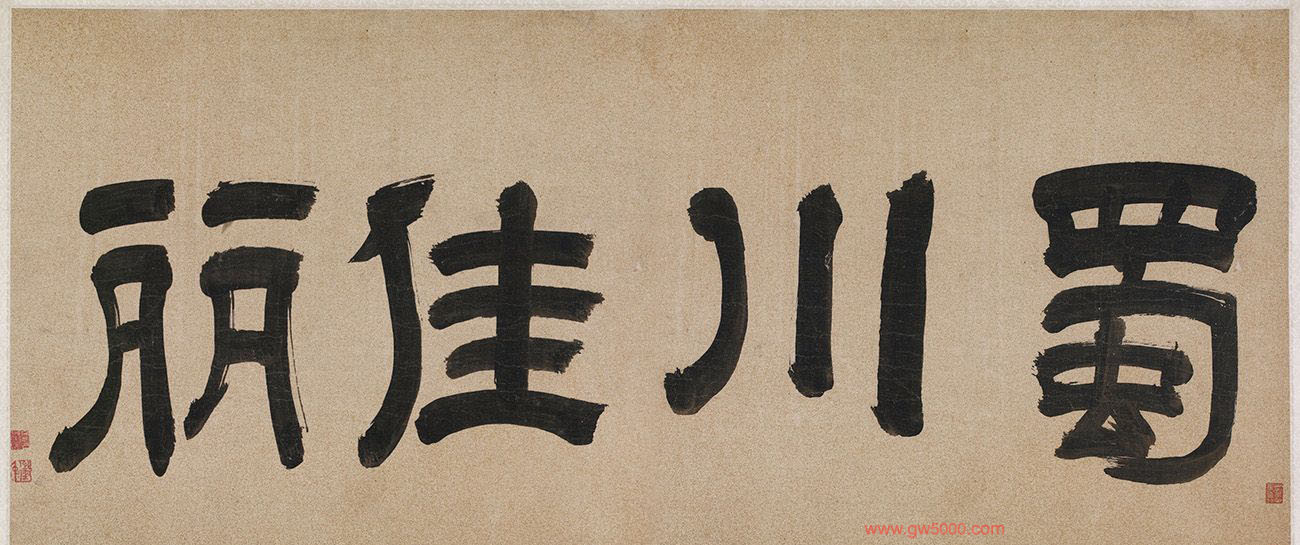 蜀川佳丽
www.gw5000.com